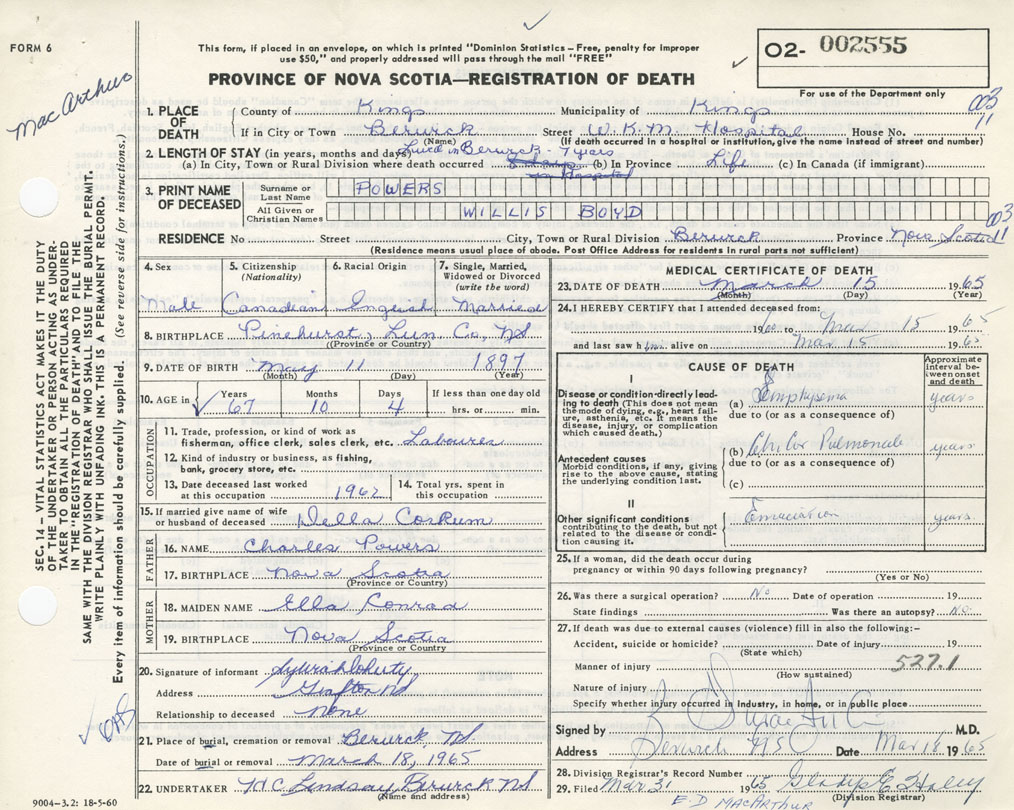 FORM 6
MacArthur
This form, if placed in an envelope, on which is printed "Dominion Statistics – Free, penalty for improper
use $50," and properly addressed will pass through the mail "FREE"
PROVINCE OF NOVA SCOTIA—REGISTRATION OF DEATH
O2- 002555
For use of the Department only
003
11
1. PLACE OF DEATH
County of Kings Municipality of Kings
If in City or Town Berwick Street W.K.M. Hospital House No.
(Name) (If death occurred in a hospital or institution, give the name instead of street and number)
2. LENGTH OF STAY (in years, months and days) Lived in Berwick - 7 years
(a) In City, Town or Rural Division where death occurred in Hospital (b) In Province Life (c) In Canada (if immigrant)
3. PRINT NAME OF DECEASED
Surname or Last Name POWERS
All Given or Christian Names WILLIS BOYD
003
11
RESIDENCE No Street City, Town or Rural Division Berwick Province Nova Scotia
(Residence means usual place of abode. Post Office Address for residents in rural parts not sufficient)
4. Sex 5. Citizenship (Nationality) 6. Racial Origin 7. Single, Married, Widowed or Divorced (write the word)
Male Canadian English Married
8. BIRTHPLACE Pinehurst, Lun. Co., NS
(Province or Country)
9. DATE OF BIRTH May 11 1897
(Month) (Day) (Year)
10. AGE in Years Months Days If less than one day old
67 10 4 hrs. or min.
OCCUPATION
11. Trade, profession, or kind of work as
fisherman, office clerk, sales clerk, etc. Labourer
12. Kind of industry or business, as fishing,
bank, grocery store, etc.
13. Date deceased last worked
at this occupation 1962
14. Total yrs. spent in
this occupation
15. If married give name of wife
or husband of deceased Della Corkum
FATHER
16. NAME Charles Powers
17. BIRTHPLACE Nova Scotia
(Province or Country)
MOTHER
18. MAIDEN NAME Ella Conrad
19. BIRTHPLACE Nova Scotia
(Province or Country)
20. Signature of informant
Address Grafton NS
Relationship to deceased None
21. Place of burial, cremation or removal Berwick, NS
Date of burial or removal March 18, 1965
22. UNDERTAKER H.C. Lindsay Berwick NS
(Name and address)
9004–3.2: 18-5-60
MEDICAL CERTIFICATE OF DEATH
23. DATE OF DEATH March 15 1965
(Month) (Day) (Year)
24. I HEREBY CERTIFY that I attended deceased from:
1960 to Mar 15 1965
and last saw him alive on Mar 15 1965
CAUSE OF DEATH
Approximate interval between onset and death
I
Disease or condition directly leading to death (This does not mean the mode of dying, e.g., heart failure, asthenia, etc. It means the disease, injury, or complication which caused death.)
(a) Emphysema years
due to (or as a consequence of)
Antecedent causes
Morbid conditions, if any, giving rise to the above cause, stating the underlying condition last.
(b) Chr Cor Pulmonale years
due to (or as a consequence of)
(c)
II
Other significant conditions
contributing to the death, but not related to the disease or condition causing it.
Emaciation years
25. If a woman, did the death occur during
pregnancy or within 90 days following pregnancy?
(Yes or No)
26. Was there a surgical operation? No Date of operation 19
State findings Was there an autopsy? No
27. If death was due to external causes (violence) fill in also the following:-
Accident, suicide or homicide? Date of injury 19
(State which)
Manner of injury 527.1
(How sustained)
Nature of injury
Specify whether injury occurred in Industry, in home, or in public place
Signed by M.D.
Address Berwick NS Date Mar 18 1965
28. Division Registrar's Record Number
29. Filed Mar 31 1965
(Division Registrar)
E D MACARTHUR
SEC. 14 – VITAL STATISTICS ACT MAKES IT THE DUTY
OF THE UNDERTAKER OR PERSON ACTING AS UNDER-
TAKER TO OBTAIN ALL THE PARTICULARS REQUIRED
IN THE "REGISTRATION OF DEATH" AND TO FILE THE
SAME WITH THE DIVISION REGISTRAR WHO SHALL ISSUE THE BURIAL PERMIT.
WRITE PLAINLY WITH UNFADING INK. THIS IS A PERMANENT RECORD.
Every item of information should be carefully supplied. (See reverse side for instructions.)